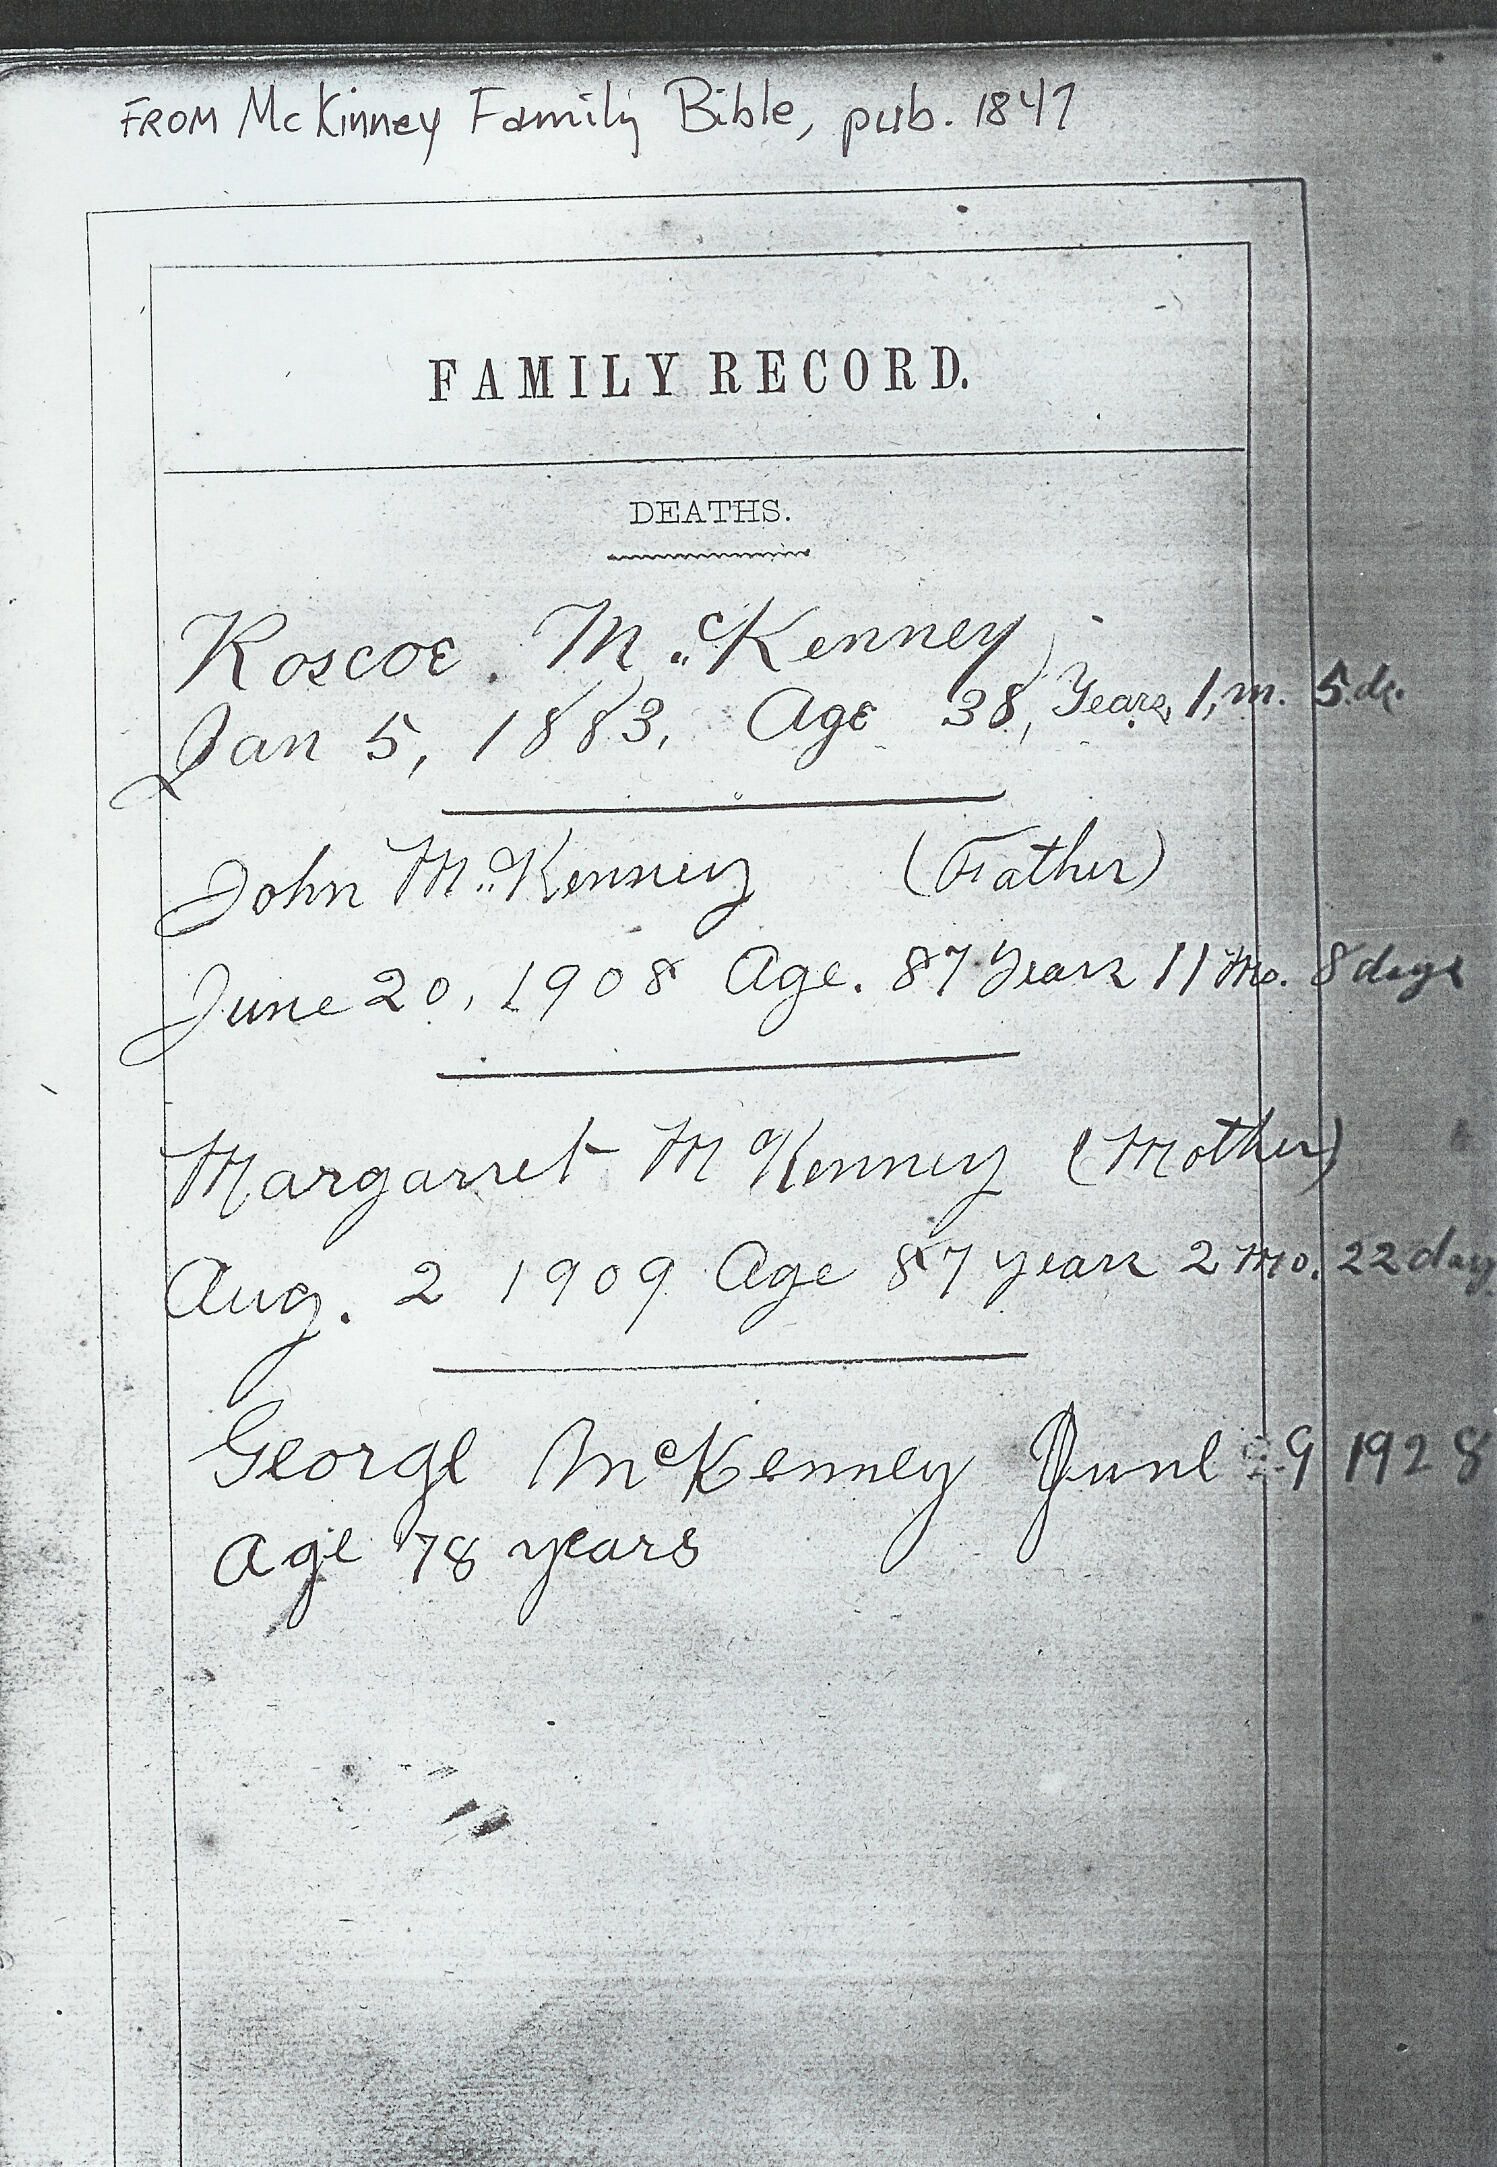 FROM McKinney Family Bible, pub. 1847
FAMILY RECORD.
DEATHS.
Roscoe. McKenney
Jan 5, 1883, Age 38, Years, 1, m. 5 ds.
John McKenney (Father)
June 20, 1908 Age. 87 Years 11 Mo. 8 days
Margarret McKenney (Mother)
Aug. 2 1909 Age 87 years 2 Mo. 22 day
George McKenney June 9 1928
age 78 years